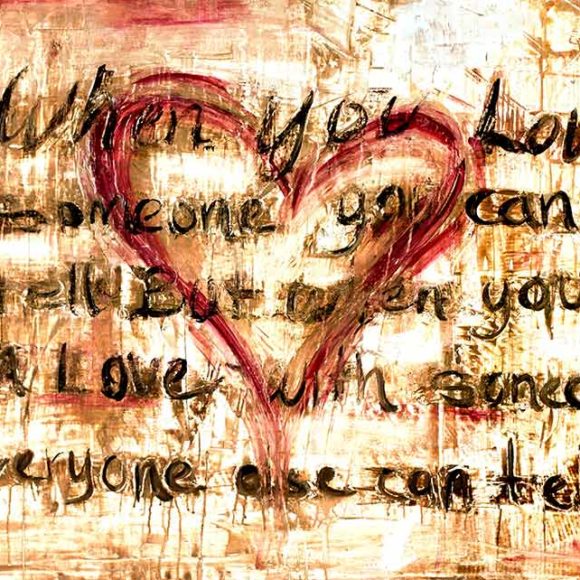 When you Lov
someone you can
ell But when you
n Love with someo
veryone else can tel